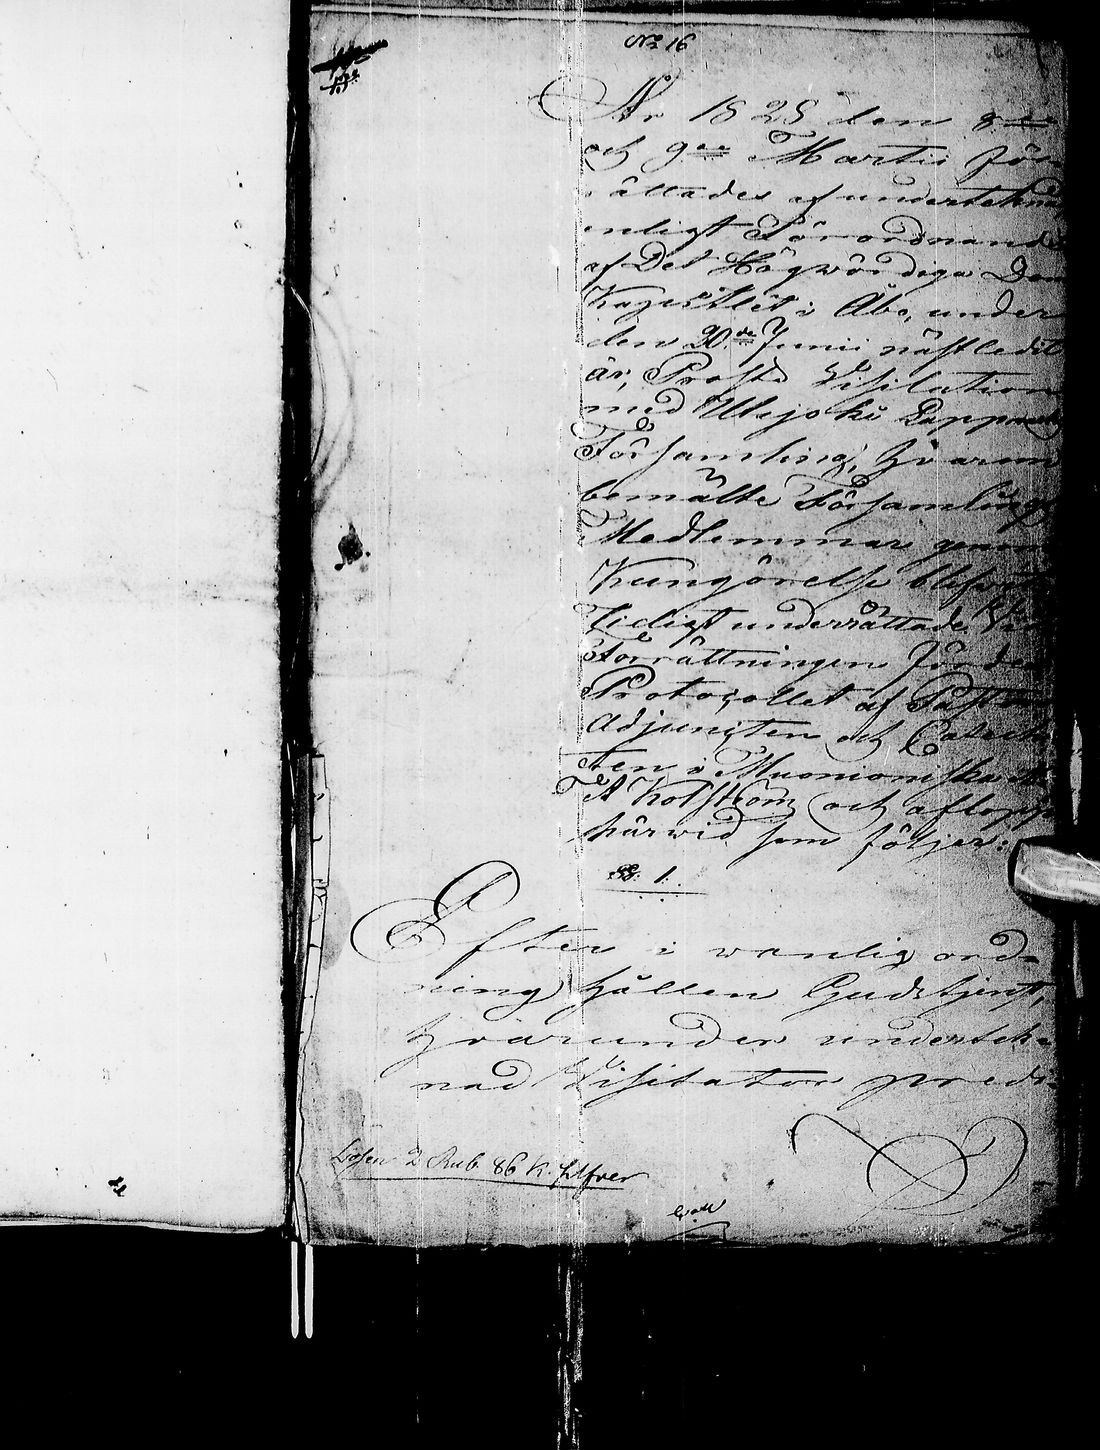 No 16
År 1825 den 8de
och 9de Martii för-
rättades af undertekna
enligt Förordnande
af Det Högwördiga Dom
Kapitlet i Åbo, under
den 20de Junii nästledit
år, Prosts Visitation
med Utsjoki Lappmarks
Församling, hvarom
bemälte Församlings
Medlemmar genom
Kungörelse blifvit
tidigt underrättade. Vid
Förrättningen fördes
Protocollet af Pastors
Adjuncten och Cateche-
ten i Muonioniska
A Kolström och aflopp
härwid som följer:
§. 1.
Efter i wanlig ord-
ning hållen Gudstjenst,
hvarunder underteck-
nad Visitator predi-
Lösen 2 Rub. 86 K. Silfver